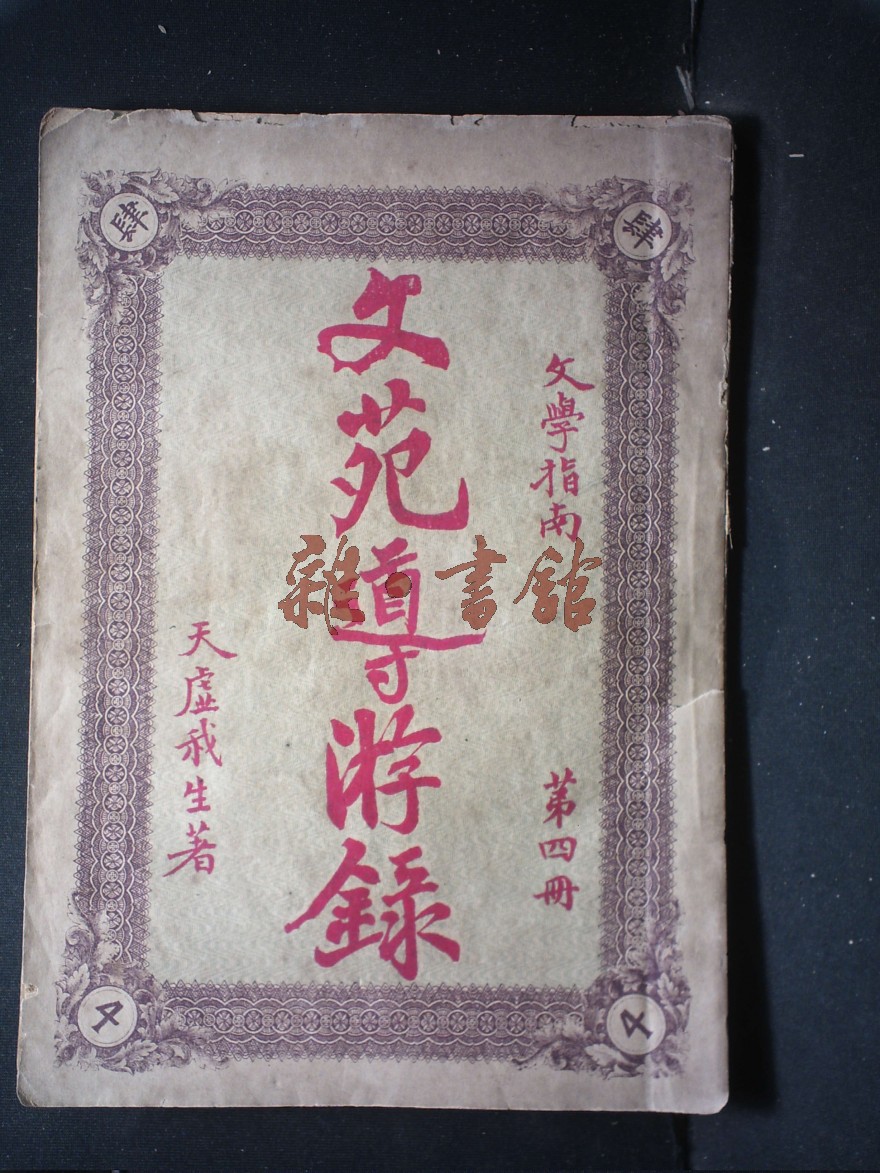 文學指南
第四冊
文苑導游錄
天虛我生著
肆
肆
4
4
雜·書館